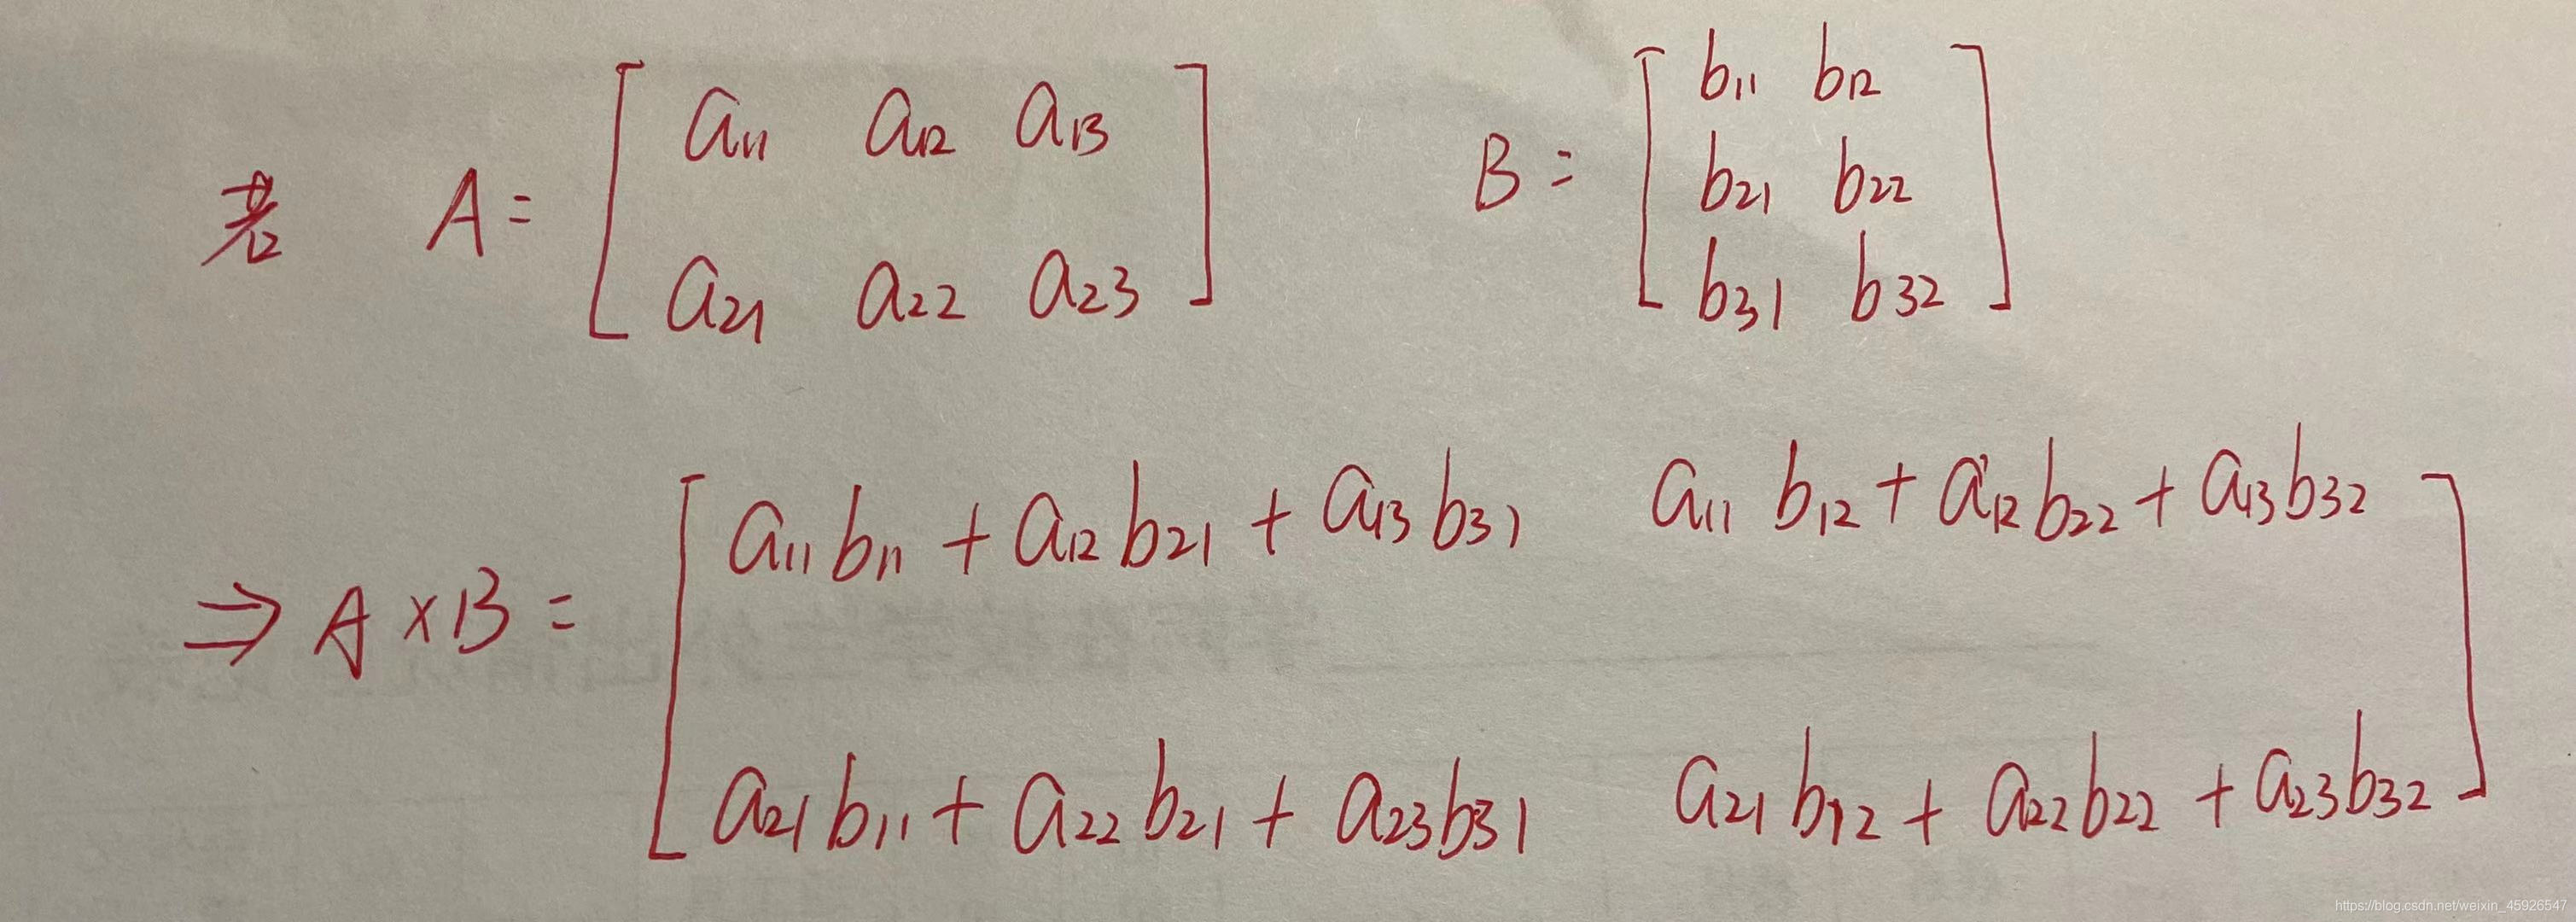 若 A = [ a11 a12 a13 B = [ b11 b12
b21 b22
a21 a22 a23 ] b31 b32 ]
[ a11b11 + a12b21 + a13b31 a11b12 + a12b22 + a13b32
⇒ A × B =
a21b11 + a22b21 + a23b31 a21b12 + a22b22 + a23b32 ]
https://blog.csdn.net/weixin_45926547